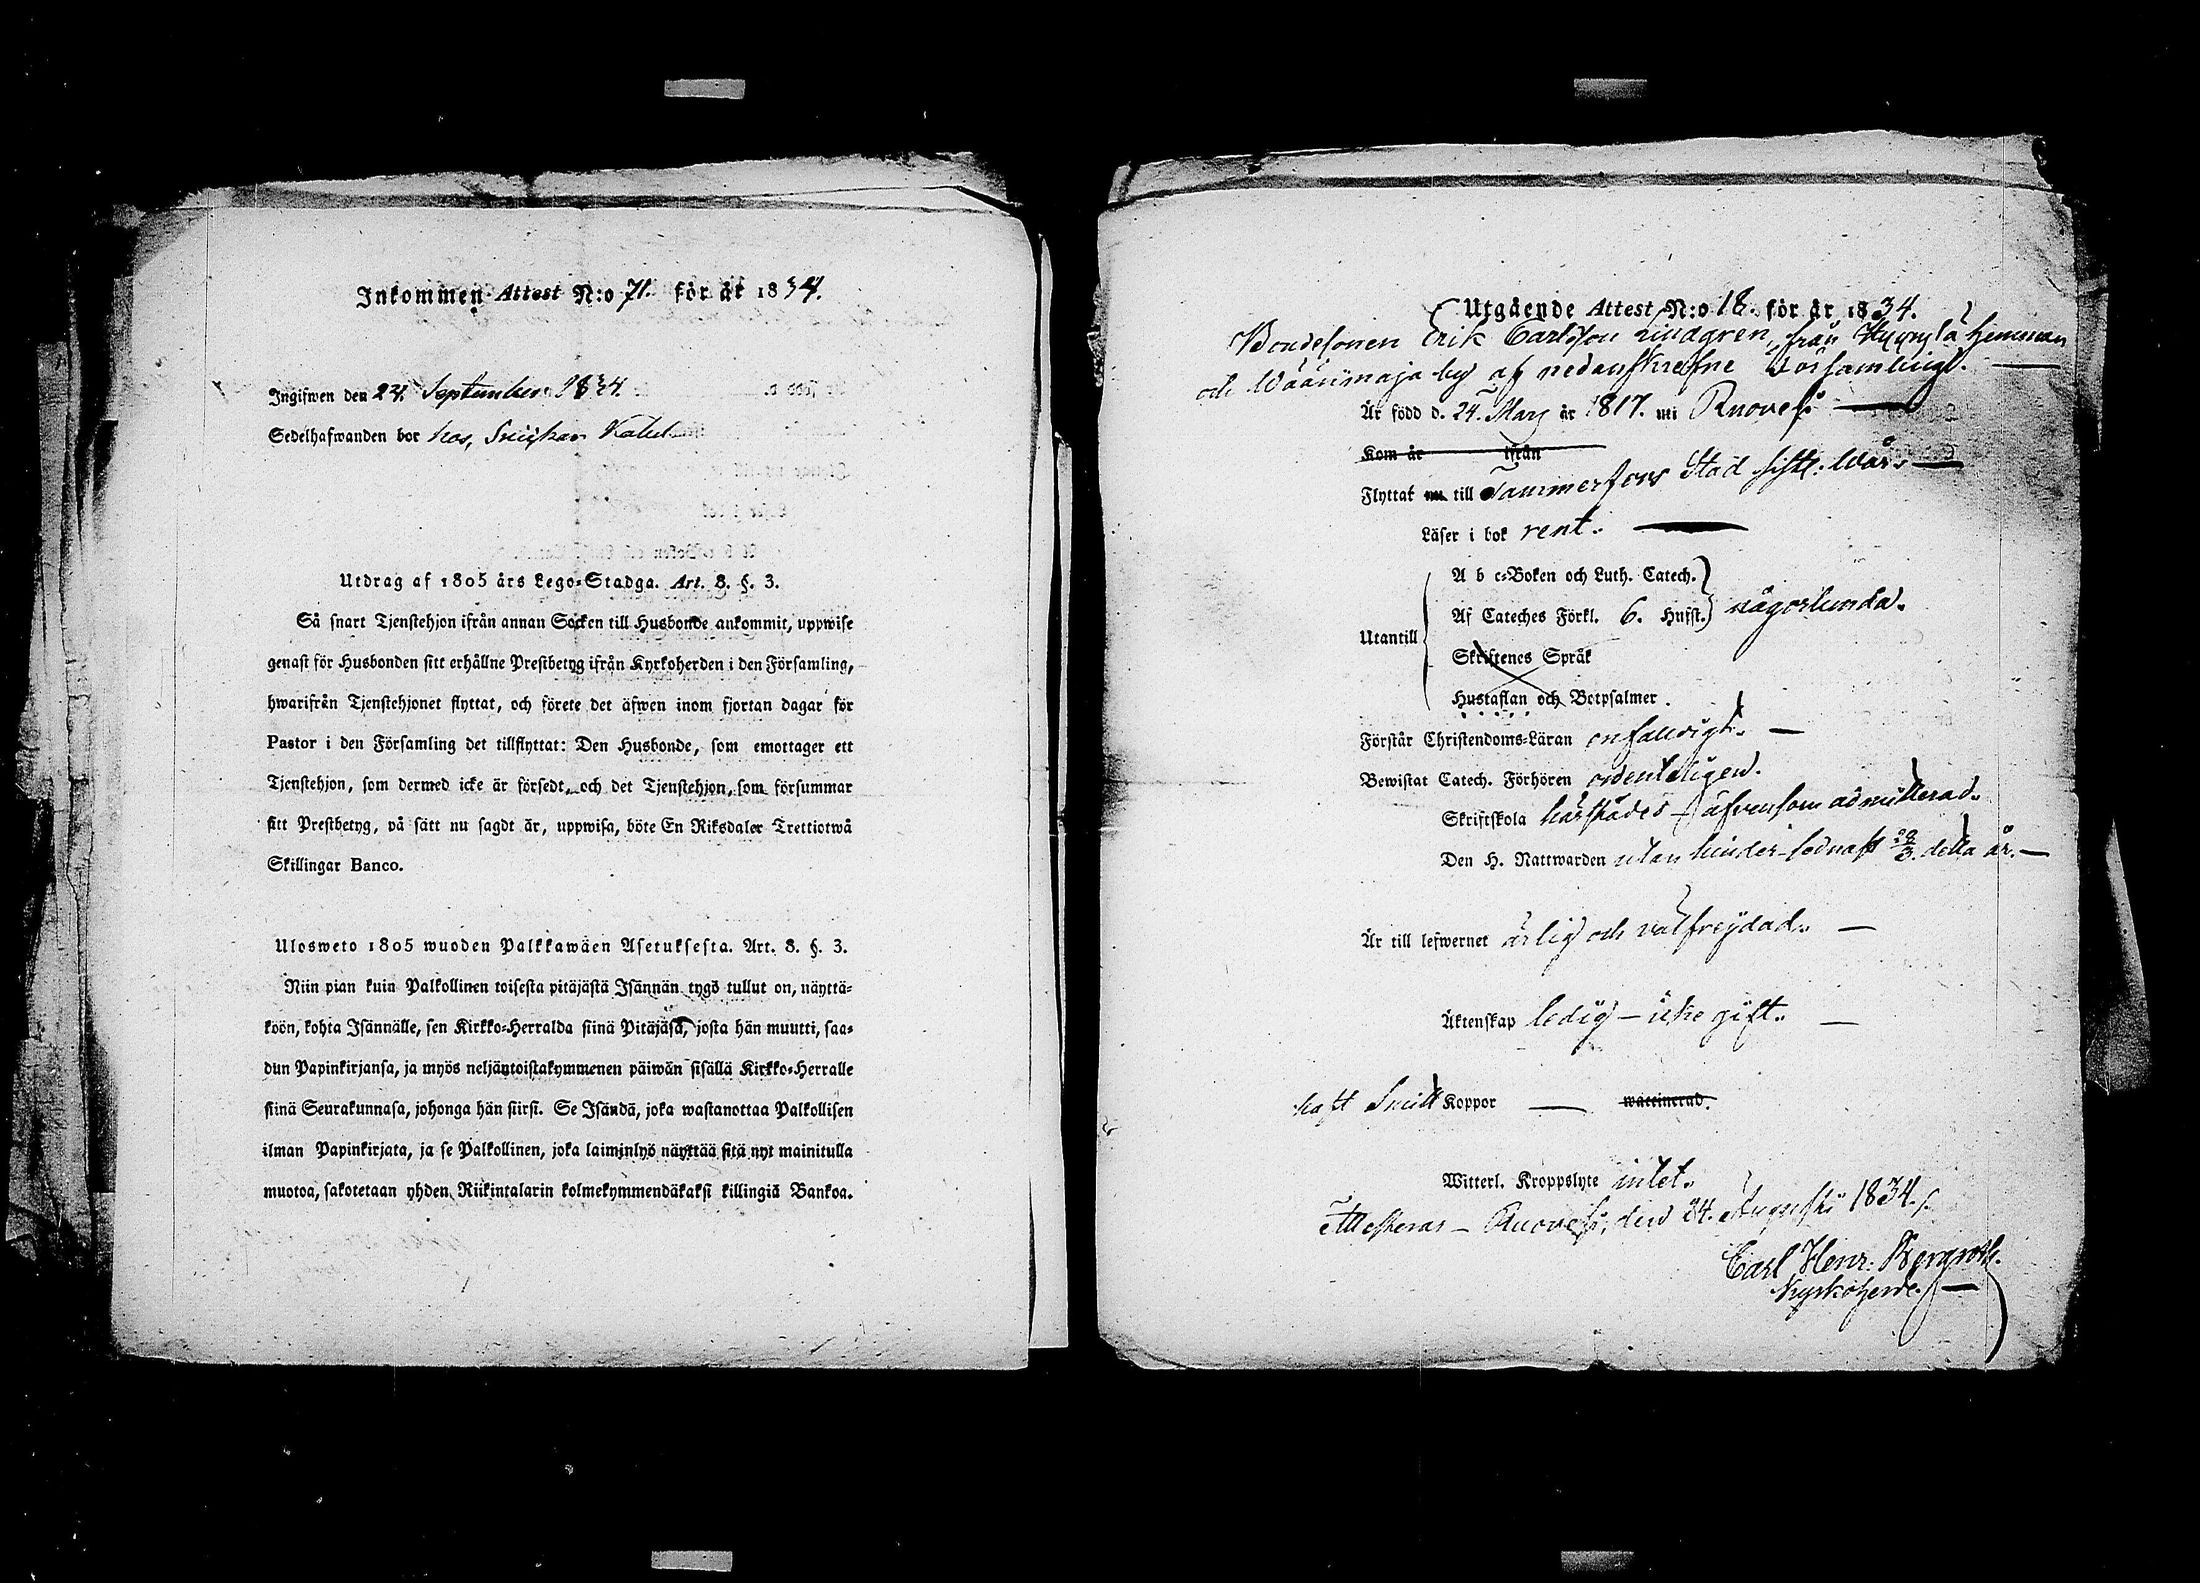 Inkommen Attest N:o 71. för år 1834.
Ingifwen den 24. September 1834.
Sedelhafwanden bor hos
Utdrag af 1805 års Lego-Stadga. Art. 8. §. 3.
Så snart Tjenstehjon ifrån annan Socken till Husbonde ankommit, uppwise
genast för Husbonden sitt erhållne Prestbetyg ifrån Kyrkoherden i den Församling,
hwarifrån Tjenstehjonet flyttat, och förete det äfwen inom fjortan dagar för
Pastor i den Församling det tillflyttat: Den Husbonde, som emottager ett
Tjenstehjon, som dermed icke är försedt, och det Tjenstehjon, som försummar
sitt Prestbetyg, på sätt nu sagdt är, uppwisa, böte En Riksdaler Trettiotwå
Skillingar Banco.
Ulosweto 1805 wuoden Palkkawäen Asetuksesta. Art. 8. §. 3.
Niin pian kuin Palkollinen toisesta pitäjästä Isännän tygö tullut on, näyttä-
köön, kohta Isännälle, sen Kirkko-Herralda siinä Pitäjäsä, josta hän muutti, saa-
dun Papinkirjansa, ja myös neljäntoistakymmenen päiwän sisällä Kirkko-Herralle
siinä Seurakunnasa, johonga hän siirsi. Se Isändä, joka wastanottaa Palkollisen
ilman Papinkirjata, ja se Palkollinen, joka laiminlyö näyttää sitä nyt mainitulla
muotoa, sakotetaan yhden Riikintalarin kolmekymmendäkaksi killingiä Bankoa.
Utgående Attest N:o 18. för år 1834.
Bondesonen Erik Carlsson Lindgren, från hemman
och Wäärimaja by af nedanskrefne Församlingl.
Är född d. 24. Mars år 1817. uti Ruovesi
Kom år ifrån
Flyttat nu till Tammerfors Stad sistl. Wår.
Läser i bok rent.
A b c-Boken och Luth. Catech.
Af Cateches Förkl. 6. Hufst. någorlunda.
Utantill
Skriftenes Språk
Hustaflan och Botpsalmer.
Förstår Christendoms-Läran enfaldigt.
Bewistat Catech. Förhören ordenteligen.
Skriftskola härstädes äfvensom admitterad.
Den H. Nattwarden utan hinder sednast 28/3. detta år.
Är till lefwernet ärlig och välfrejdad.
Äktenskap ledig - icke gift.
haft Smitt Koppor waccinerad.
Witterl. Kroppslyte intet.
Attesteras - Ruovesi, den 24. Augusti 1834.
Carl Henr. Bergroth.
Kyrkoherde.